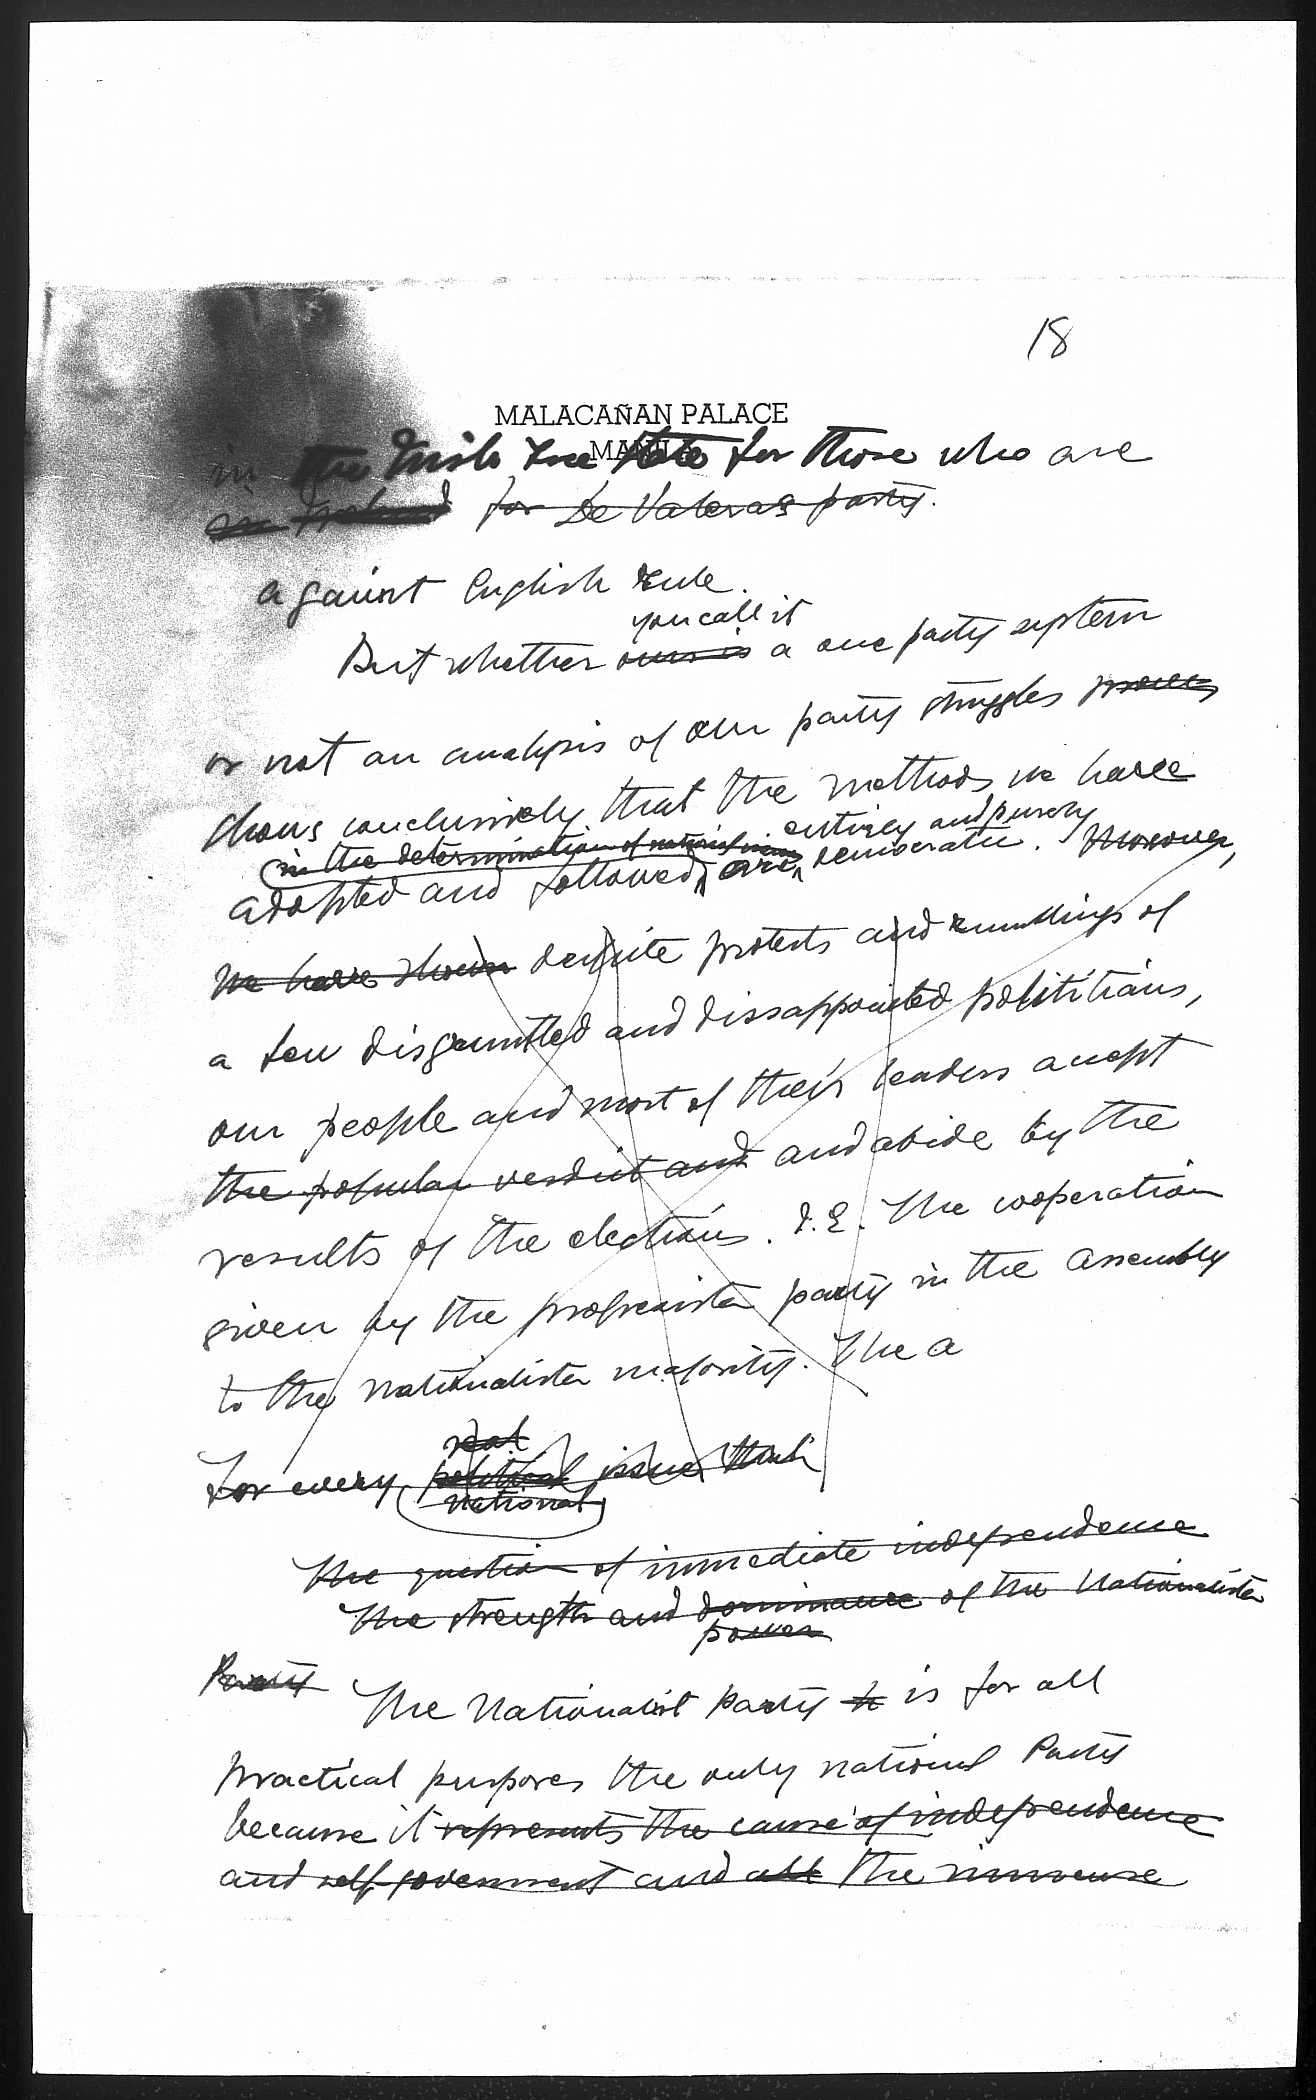 18
MALACAÑAN PALACE
MANILA
in the Irish Free State for those who are
for De Valeras party.
against English rule.
you call it
But whether ours is a one party system
or not an analysis of our party struggles proves
shows conclusively that the methods we have
entirely and purely
in the determination of national
adopted and followed are democratic. Moreover,
we have shown despite protests and rumblings of
a few disgruntled and dissappointed polititians,
our people and most of their leaders accept
the popular verdict and and abide by the
results of the elections. I.E. The cooperation
given by the progresista party in the assembly
to the nationalista majority. The a
real
For every political issue that
national
The question of immediate independence
The strength and dominance of the Nationalista
power
Party The Nationalist Party is for all
practical purposes the only national Party
because it represents the cause of independence
and self-government and all the immense